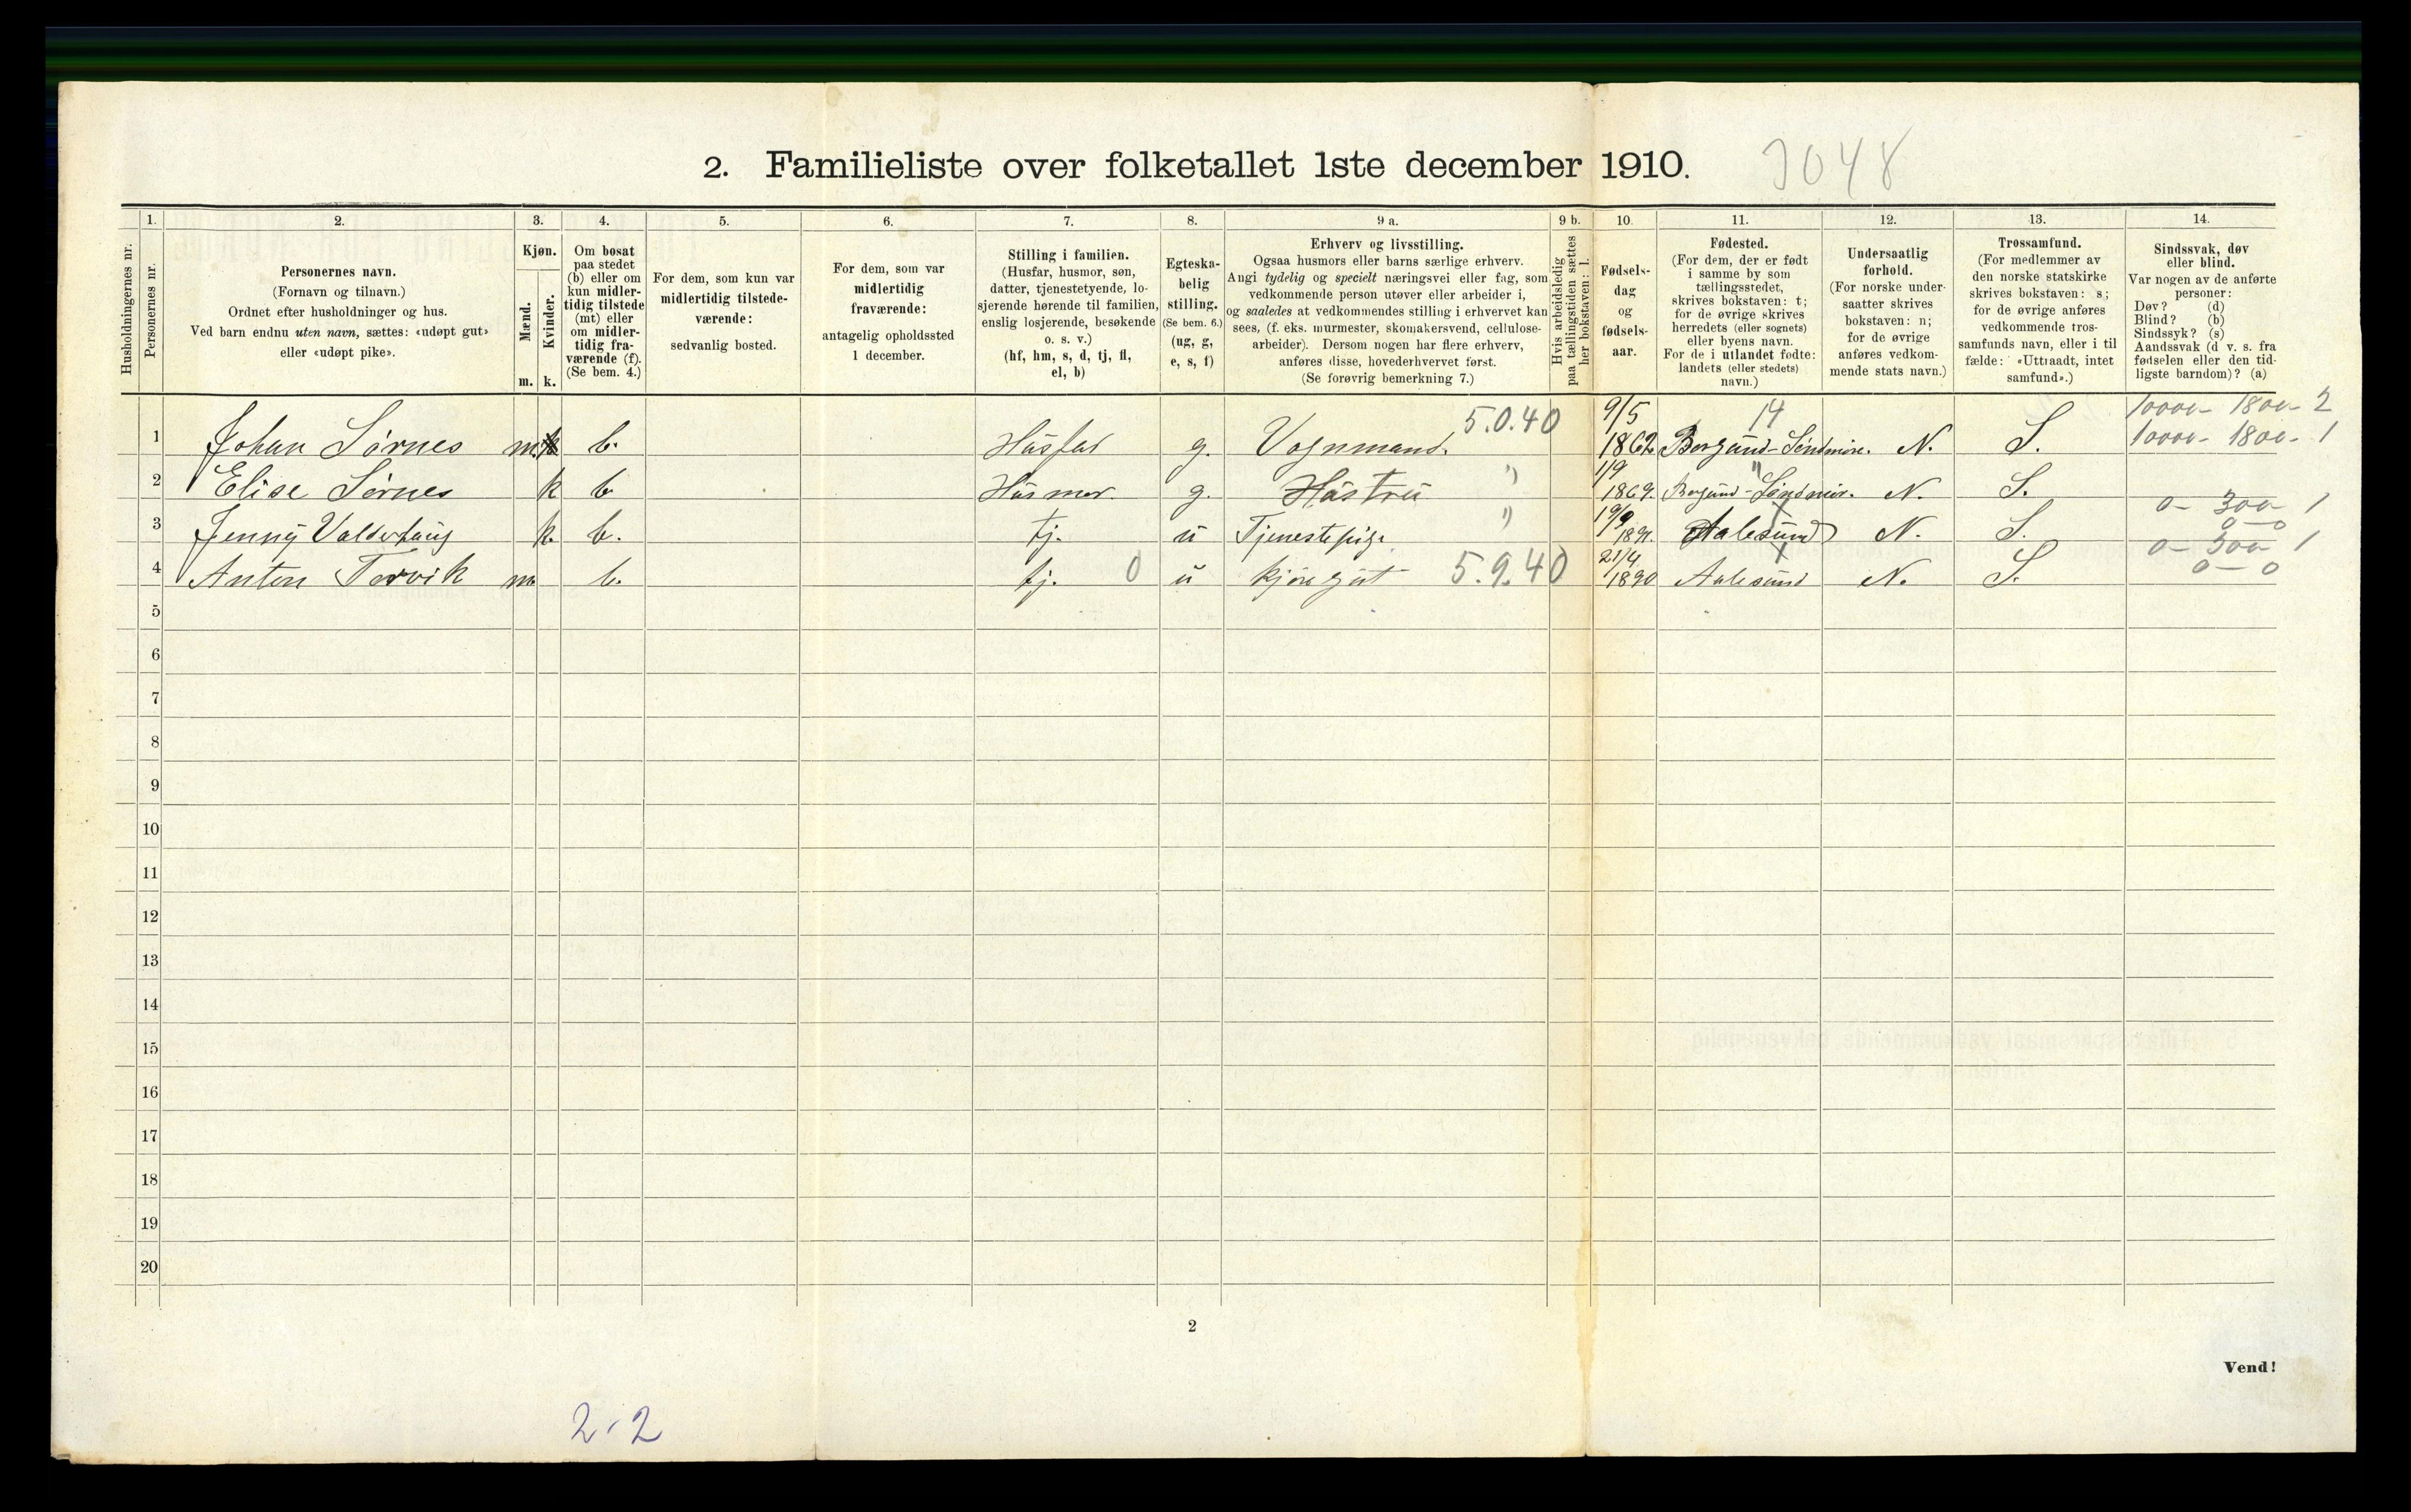 2. Familieliste over folketallet 1ste december 1910. 3048
Husholdningernes nr.
1. Personernes nr.
2. Personernes navn.
(Fornavn og tilnavn.)
Ordnet efter husholdninger og hus.
Ved barn endnu uten navn, sættes: «udøpt gut»
eller «udøpt pike».
3. Kjøn.
Mænd. m.
Kvinder. k.
4. Om bosat
paa stedet
(b) eller om
kun midler-
tidig tilstede
(mt) eller
om midler-
tidig fra-
værende (f).
(Se bem. 4.)
5. For dem, som kun var
midlertidig tilstede-
værende:
sedvanlig bosted.
6. For dem, som var
midlertidig
fraværende:
antagelig opholdssted
1 december.
7. Stilling i familien.
(Husfar, husmor, søn,
datter, tjenestetyende, lo-
sjerende hørende til familien,
enslig losjerende, besøkende
o. s. v.)
(hf, hm, s, d, tj, fl,
el, b)
8. Egteska-
belig
stilling.
(Se bem. 6.)
(ug, g,
e, s, f)
9 a. Erhverv og livsstilling.
Ogsaa husmors eller barns særlige erhverv.
Angi tydelig og specielt næringsvei eller fag, som
vedkommende person utøver eller arbeider i,
og saaledes at vedkommendes stilling i erhvervet kan
sees, (f. eks. murmester, skomakersvend, cellulose-
arbeider). Dersom nogen har flere erhverv,
anføres disse, hovederhvervet først.
(Se forøvrig bemerkning 7.)
9 b. Hvis arbeidsledig
paa tællingstiden sættes
her bokstaven: l.
10. Fødsels-
dag
og
fødsels-
aar.
11. Fødested.
(For dem, der er født
i samme by som
tællingsstedet,
skrives bokstaven: t;
for de øvrige skrives
herredets (eller sognets)
eller byens navn.
For de i utlandet fødte:
landets (eller stedets)
navn.)
12. Undersaatlig
forhold.
(For norske under-
saatter skrives
bokstaven: n;
for de øvrige
anføres vedkom-
mende stats navn.)
13. Trossamfund.
(For medlemmer av
den norske statskirke
skrives bokstaven: s;
for de øvrige anføres
vedkommende tros-
samfunds navn, eller i til
fælde: «Uttraadt, intet
samfund».)
14. Sindssvak, døv
eller blind.
Var nogen av de anførte
personer:
Døv? (d)
Blind? (b)
Sindssyk? (s)
Aandssvak (d v. s. fra
fødselen eller den tid-
ligste barndom)? (a)
5.0.40 9/5 14 10000- 1800- 2
1 Johan Sørnes m. k b. Husfar g. Vognmand. 1862 Borgund-Søndmøre. N. S. 10000- 1800- 1
2 Elise Sørnes k b. Husmor. g. Hustru " 1/9 1869. Borgund-Søndmør. " N. S.
3 Jenny Valderhaug k. b. tj. u Tjenestepige " 19/9 Aalesund N. S. 0- 300 1 0-0
4 Anton Torvik m. b. tj. 0 u kjøregut 5.9.40 21/4 1890 Aalesund N. S. 0- 300 1 0-0
5
6
7
8
9
10
11
12
13
14
15
16
17
18
19
20
2
Vend!
2-2